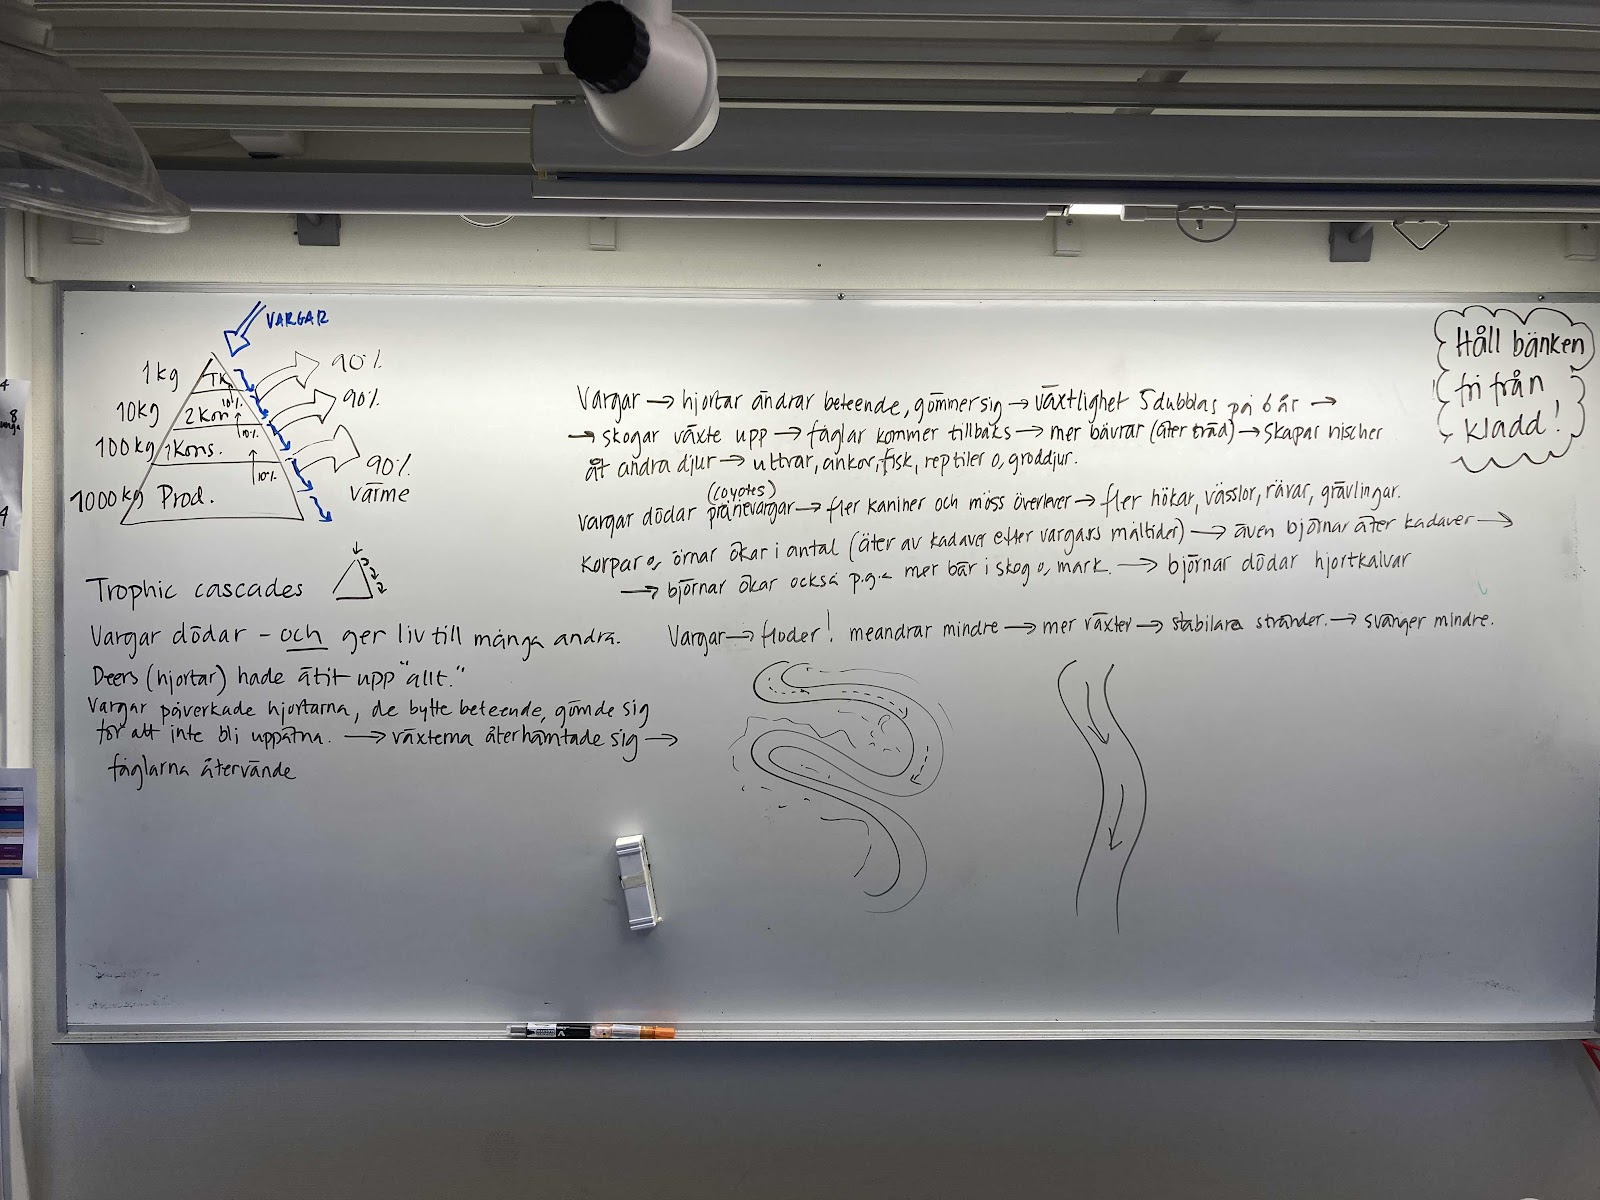 VARGAR
1kg TK 90%
10kg 2 Kon 10% 90%
100kg 1Kons. 10% 90%
1000kg Prod. 10% värme
Trophic cascades
Vargar dödar - och ger liv till många andra.
Deers (hjortar) hade ätit upp "allt."
Vargar påverkade hjortarna, de bytte beteende, gömde sig
för att inte bli uppätna. → växterna återhämtade sig →
fåglarna återvände
Vargar → hjortar ändrar beteende, gömmer sig → växtlighet 5dubblas på 6 år →
→ skogar växte upp → fåglar kommer tillbaks → mer bävrar (äter träd) → skapar nischer
åt andra djur → uttrar, ankor, fisk, reptiler o, groddjur.
(coyotes)
Vargar dödar prärievargar → fler kaniner och möss överlever → fler hökar, vässlor, rävar, grävlingar.
Korpar o, örnar ökar i antal (äter av kadaver efter vargars måltider) → även björnar äter kadaver →
→ björnar ökar också p.g.a mer bär i skog o, mark. → björnar dödar hjortkalvar
Vargar → floder! meandrar mindre → mer växter → stabilare stränder. → svänger mindre.
Håll bänken
fri från
kladd!